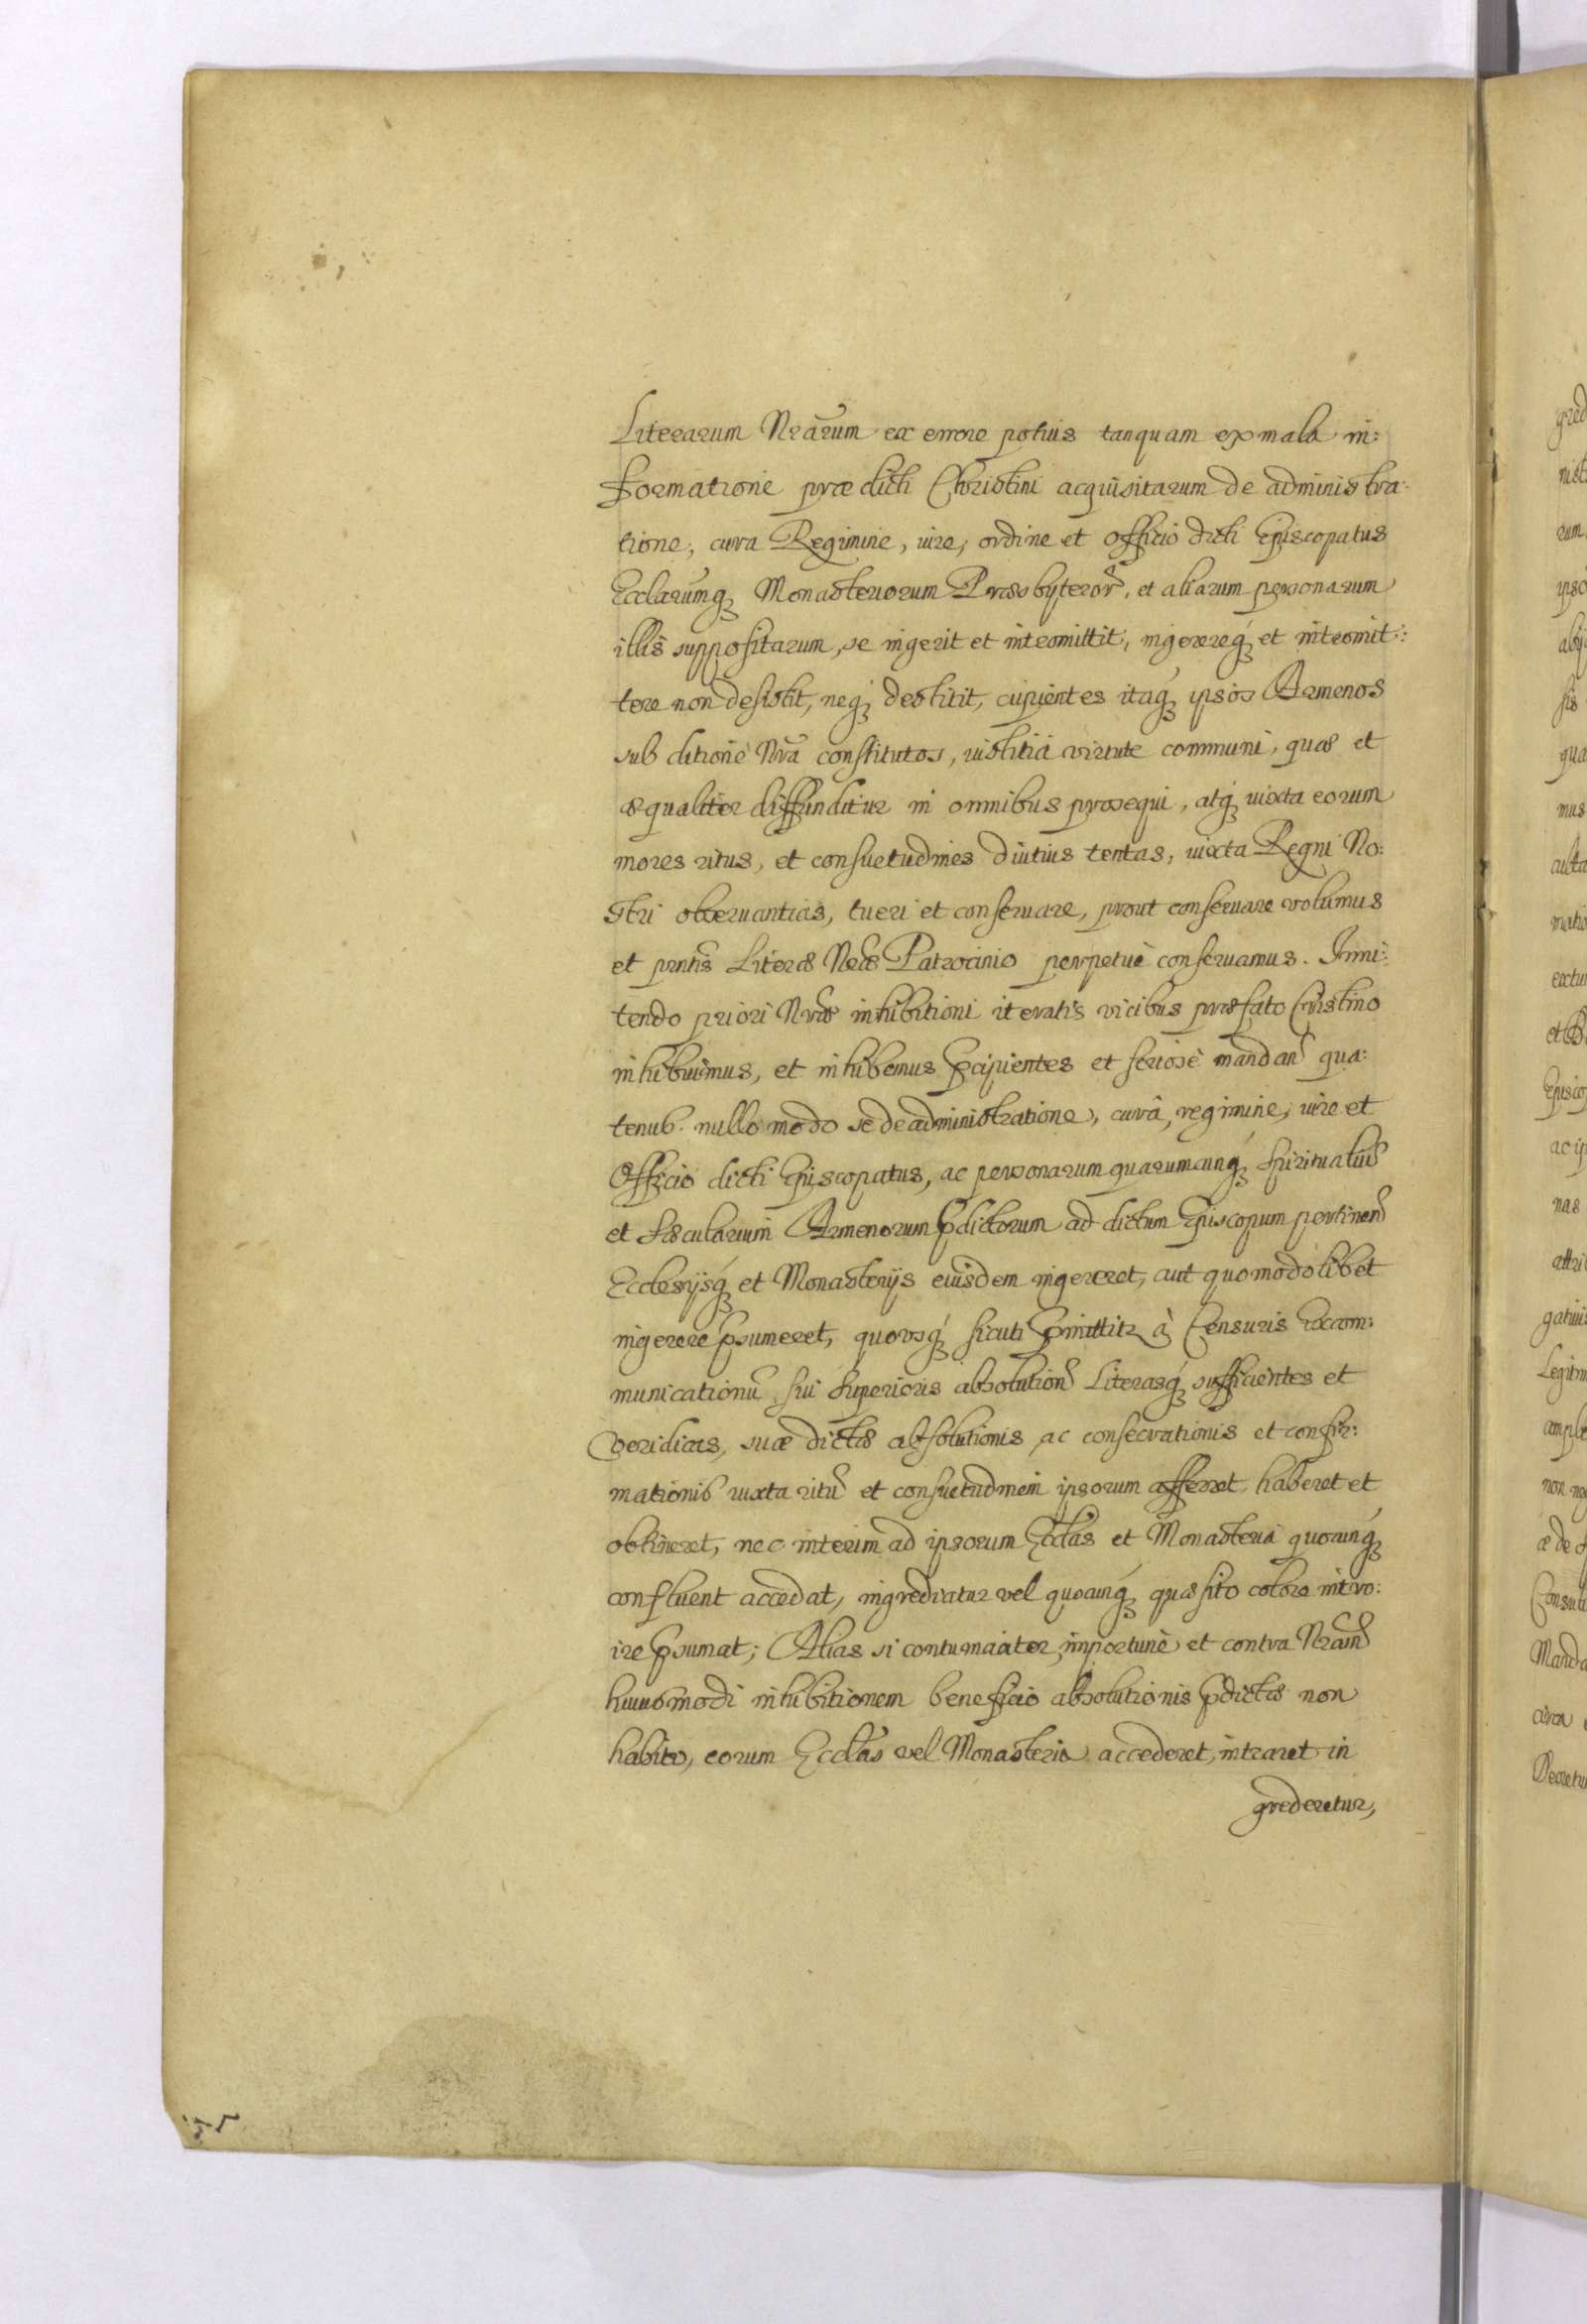 Literarum Nrarum ex errore potius tanquam ex mala in:
formatione prædicti Christini acquisitarum de administra:
tione, cura Regimine, iure, ordine et officio dicti Episcopatus
Ecclarumq; Monasteriorum Præsbyteror, et aliarum personarum
illis suppositarum, se ingerit et intromittit, ingerereq; et intromit:
tere non desistit, neq; destitit, cupientes itaq; ipsos Armenos
sub ditione Nra constitutos, iustitia virtute communi, quæ et
æqualiter diffunditur in omnibus prosequi, atq; iuxta eorum
mores ritus, et consuetudines diutius tentas, iuxta Regni No:
stri obseruantias, tueri et conseruare, prout conseruare volumus
et prntis Literæ Nræ Patrocinio perpetuè conseruamus. Inni:
tendo priori Nræ inhibitioni iteratis vicibus præfato Cristino
inhibuimus, et inhibemus Præcipientes et seriosè mandan qua:
tenus nullo modo se de administratione, curâ, regimine, iure et
Officio dicti Episcopatus, ac personarum quarumcunq; spiritualiũ
et sæcularium Armenorum Pdictorum ad dictum Episcopum pertinen
Ecclesijsq; et Monasterijs eiusdem ingereret, aut quomodolibet
ingerere Psumeret, quousq; sicuti Pmittitr à Censuris Excom:
municationũ sui Superioris absolution Literasq; sufficientes et
veridicas, suæ dictæ absolutionis ac consecrationis et confir:
mationis iuxta ritũ et consuetudinem ipsorum afferret haberet et
obtineret, nec interim ad ipsorum Ecclas et Monasteria quocunq;
confluent accedat, ingrediatur vel quocunq; quæsito colore intro:
ire Psumat; Alias si contumaciter, importunè et contra Nram
huiusmodi inhibitionem beneficio absolutionis Pdictæ non
habito, eorum Ecclas vel Monasteria accederet, intraret in
grederetur,